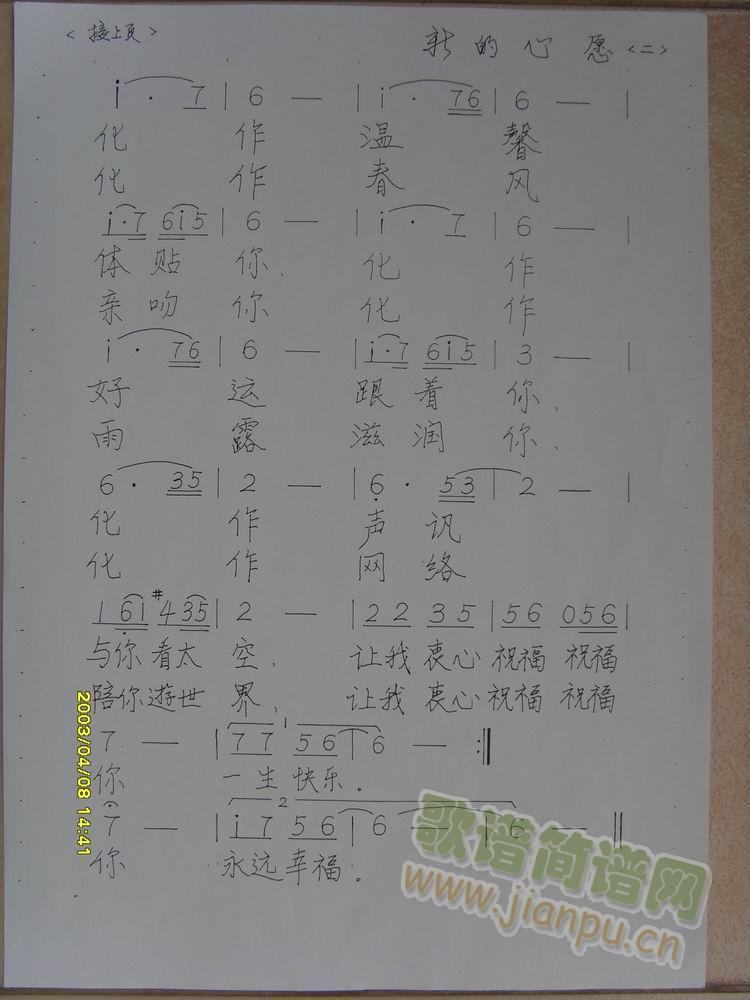 <接上页> 新的心愿<二>
i · 7 | 6 — | i · 76 | 6 — |
化 作 温 馨
化 作 春 风
i·7 6i5 | 6 — | i · 7 | 6 — |
体 贴 你、 化 作
亲 吻 你 化 作
i · 76 | 6 — | i·7 6i5 | 3 — |
好 运 跟 着 你、
雨 露 滋 润 你、
6 · 35 | 2 — | 6 · 53 | 2 — |
化 作 声 讯
化 作 网 络
1 6i #4 35 | 2 — | 22 35 | 56 056 |
与你 看太 空、 让我 衷心 祝福 祝福
陪你 遊世 界、 让我 衷心 祝福 祝福
1
7 — | 77 56 | 6 — :||
你 一生 快乐。
2
7 — | i7 56 | 6 — | 6 — ||
你 永远 幸福。
2003/04/08 14:41
歌谱简谱网
www.jianpu.cn